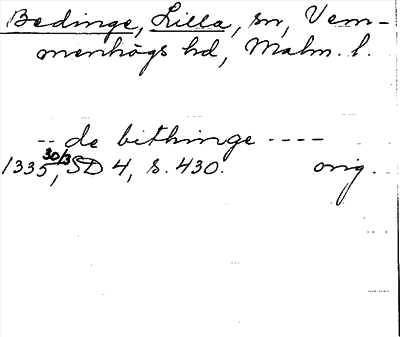 Bedinge, Lilla, sn, Vem-
menhögs hd, Malm. l.
-- de bithinge ----
1335 30/3, SD 4, s. 430. orig.